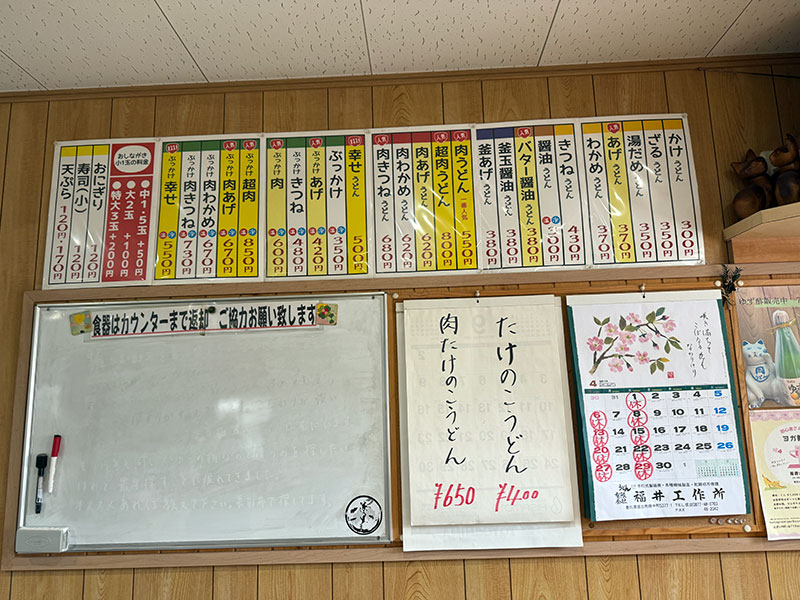 かけうどん 300円
ざるうどん 350円
湯だめうどん 350円
人気 あげうどん 370円
わかめうどん 370円
きつねうどん 430円
醤油うどん 300円
人気 バター醤油うどん 380円
釜玉醤油うどん 380円
釜あげうどん 380円
人気 肉うどん 一番人気 550円
人気 超肉うどん 800円
肉あげうどん 620円
肉わかめうどん 620円
肉きつねうどん 680円
幸せうどん 500円
ぶっかけ 350円
人気 ぶっかけあげ 420円
ぶっかけきつね 480円
人気 ぶっかけ肉 600円
人気 ぶっかけ超肉 850円
ぶっかけ肉あげ 670円
ぶっかけ肉わかめ 670円
ぶっかけ肉きつね 730円
ぶっかけ幸せ 550円
おしながき
小1玉の料金
●中1.5玉+50円
●大2玉 +100円
●特大3玉+200円
おにぎり 120円
寿司(小) 120円
天ぷら 120円・170円
食器はカウンターまで返却 ご協力お願い致します
たけのこうどん ¥400
肉たけのこうどん ¥650
4
30 31 1 2 3 4 5
6 7 8 9 10 11 12
13 14 15 16 17 18 19
20 21 22 23 24 25 26
27 28 29 30
休
福井工作所
ゆず酢販売中
ヨガ